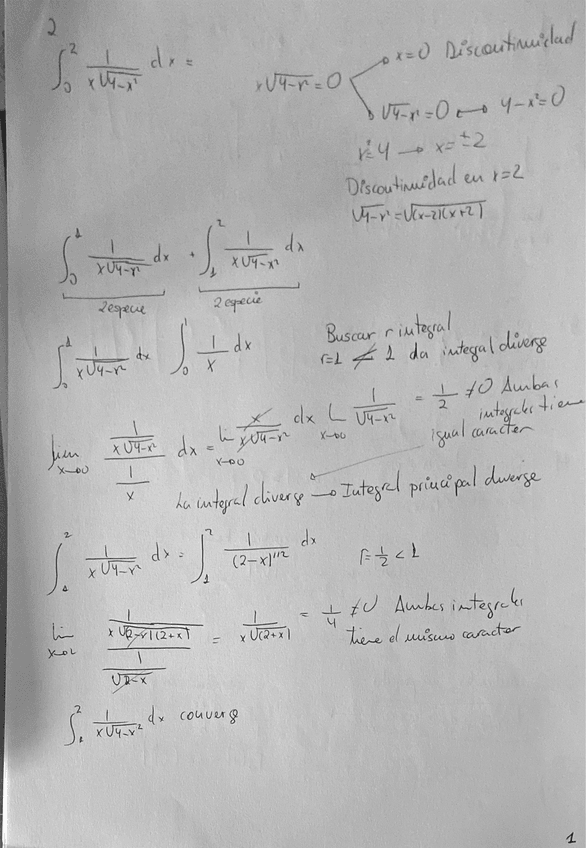 2
∫₀² 1/(x√(4-x²)) dx =
x√(4-x²) = 0
x=0 Discontinuidad
√(4-x²) = 0 ↔ 4-x²=0
x²=4 → x=±2
Discontinuidad en x=2
√(4-x²) = √((x-2)(x+2))
∫₀¹ 1/(x√(4-x²)) dx + ∫₁² 1/(x√(4-x²)) dx
2 especie 2 especie
Buscar r integral
∫₀¹ 1/(x√(4-x²)) dx ∫₀¹ 1/x dx
r=1 ≮ 1 da integral diverge
lim x→0 (1/(x√(4-x²)))/(1/x) dx = lim x→0 x/(x√(4-x²)) dx L x→0 1/√(4-x²) = 1/2 ≠0 Ambas
integrales tiene
igual caracter
La integral diverge → Integral principal diverge
∫₁² 1/(x√(4-x²)) dx = ∫₁² 1/(2-x)^(1/2) dx r=1/2 < 1
lim x→2 (1/(x√((2-x)(2+x))))/(1/√(2-x)) = 1/(x√(2+x)) = 1/4 ≠0 Ambas integrales
tiene el mismo caracter
∫₁² 1/(x√(4-x²)) dx converge
1